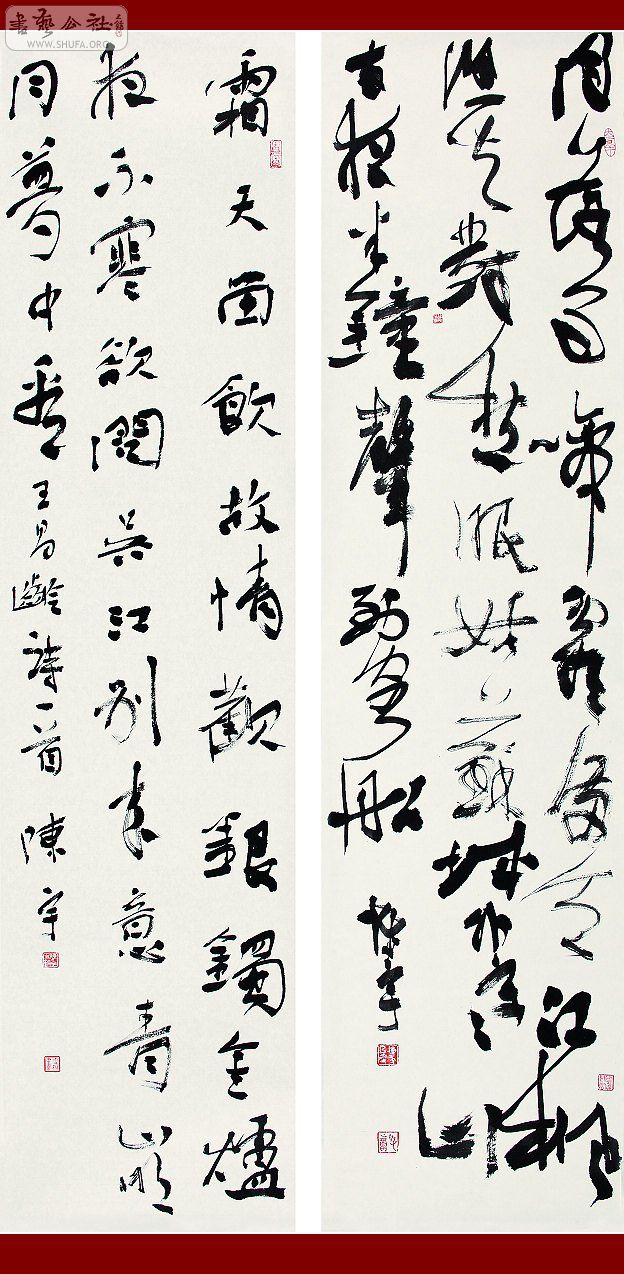 書藝公社
WWW.SHUFA.ORG
月落烏啼霜滿天江楓
漁火對愁眠姑蘇城外寒山
寺夜半鐘聲到客船 陳宇
霜天留飲故情歡銀鐲金爐
夜不寒欲問吳江別来意青山明
月夢中看 王昌齡詩一首 陳宇